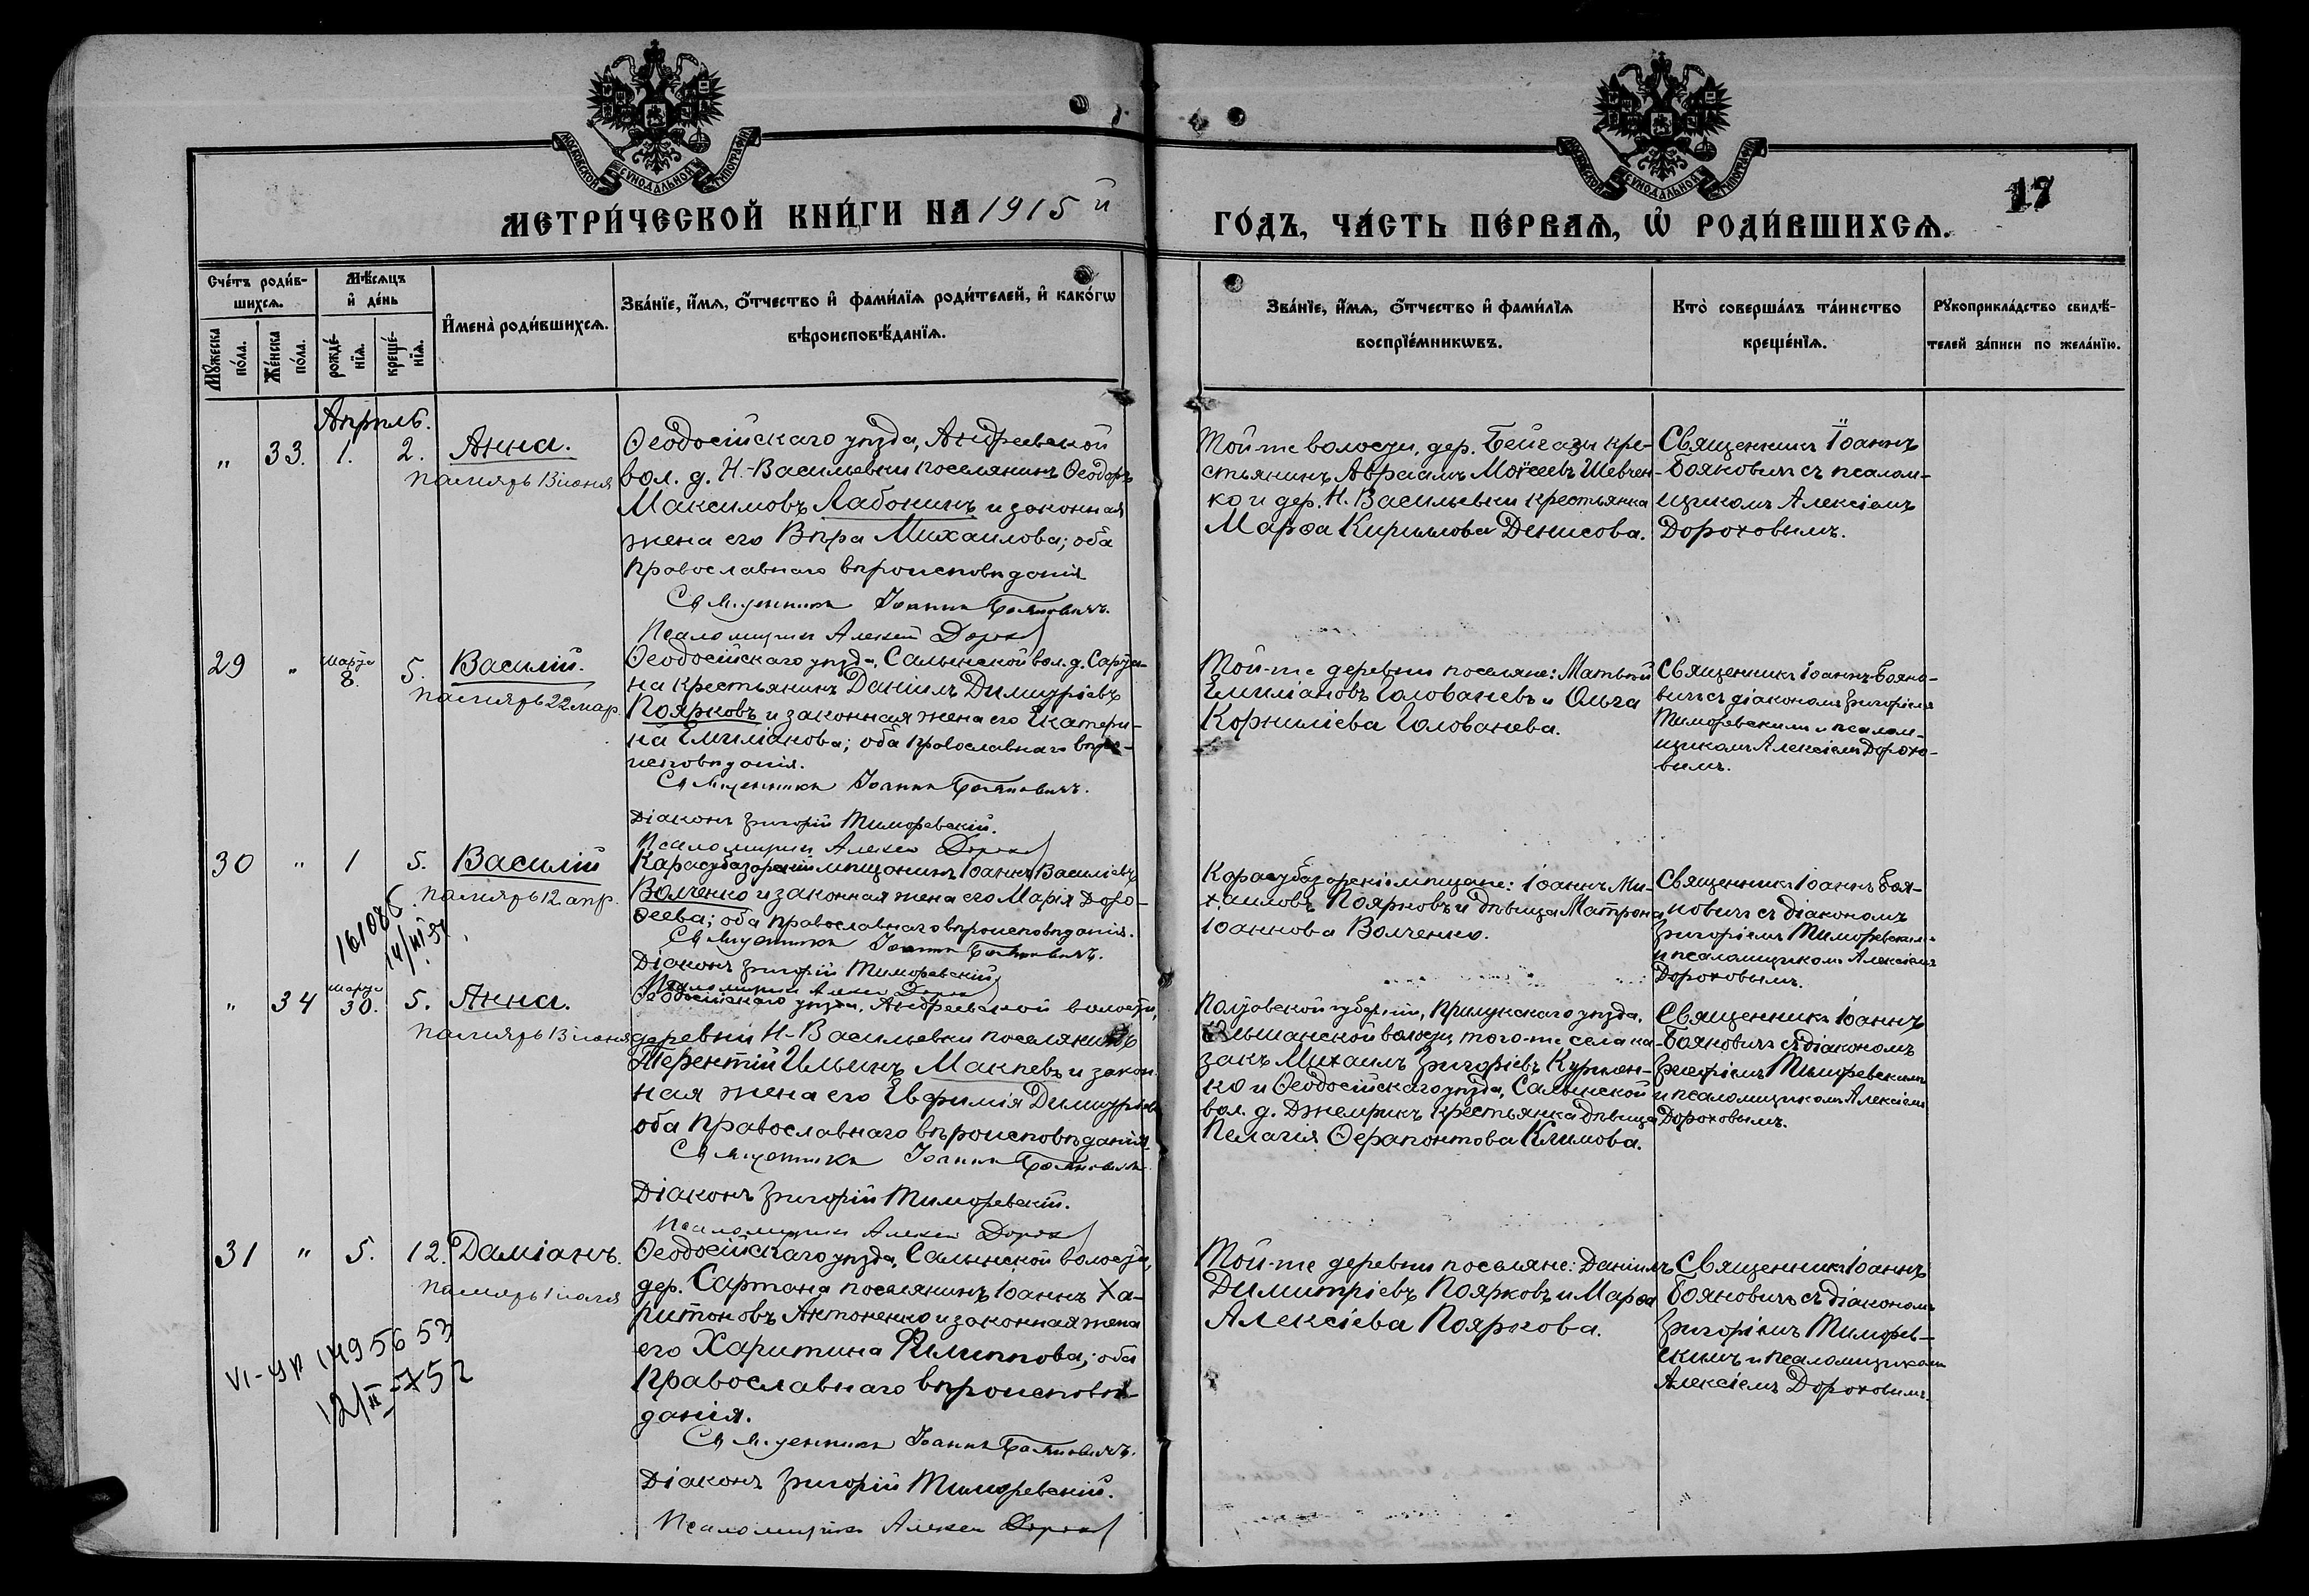 МОСКОВСКОЙ СѴНОДАЛЬНОЙ ТИПОГРАФІИ
МОСКОВСКОЙ СѴНОДАЛЬНОЙ ТИПОГРАФІИ
МЕТРИ́ЧЕСКОЙ КНИ́ГИ НА 1915 й
ГО́ДЪ, ЧА́СТЬ ПЕ́РВАѦ, Ѽ РОДИ́ВШИХСѦ.
17
Сче́тъ роди́в-
шихсѧ.
Мꙋ́жеска по́ла.
Же́нска по́ла.
Мѣ́сѧцъ
и҆ де́нь
рожде́-
нїѧ.
креще́-
нїѧ.
И҆мена̀ роди́вшихсѧ.
Зва́нїе, и҆́мѧ, ѻ҆́тчество и҆ фами́лїѧ роди́телей, и҆ како́гѡ
вѣроисповѣ́данїѧ.
Зва́нїе, и҆́мѧ, ѻ҆́тчество и҆ фами́лїѧ
воспрїе́мникѡвъ.
Кто̀ соверша́лъ та́инство
креще́нїѧ.
Рꙋкоприкла́дство свидѣ́-
телей за́писи по жела́нїю.
Апрѣль.
" 33. 1. 2. Анна.
память 13 іюня
Ѳеодосійскаго уѣзда, Андреевской
вол. д. Н-Васильевки поселянинъ Ѳеодоръ
Максимовъ Лабонинъ и законная
жена его Вѣра Михаилова; оба
православнаго вѣроисповѣданія
Священникъ Іоаннъ Бояновичъ.
Псаломщикъ Алексей Дорохов
Той-же волости, дер. Бейгазы кре-
стьянинъ Авраамъ Моѵсеевъ Шевчен-
ко и дер. Н. Васильевки крестьянка
Марѳа Кириллова Денисова.
Священникъ Іоаннъ
Бояновичъ съ псалом-
щикомъ Алексіемъ
Дороховымъ.
29 " марта 8. 5. Василій.
память 22 мар.
Ѳеодосійскаго уѣзда, Салынской вол. д. Сарта-
на крестьянинъ Даніилъ Димитріевъ
Поярковъ и законная жена его Екатери-
на Емиліанова; оба православнаго вѣро-
исповѣданія.
Священникъ Іоаннъ Бояновичъ.
Діаконъ Григорій Тиморевскій.
Псаломщикъ Алексей Дорохов
Той-же деревни поселяне: Матвей
Емиліановъ Голованевъ и Ольга
Корниліева Голованева.
Священникъ Іоаннъ Бояно-
вичъ съ діакономъ Григоріемъ
Тиморевскимъ и псалом-
щикомъ Алексіемъ Дорохо-
вымъ.
30 " 1 5. Василій
память 12 апр.
161086
14/VI 51
Карасубазарскій мѣщанинъ Іоаннъ Василіевъ
Волченко и законная жена его Марія Доро-
ѳеева; оба православнаго вѣроисповѣданія.
Священникъ Іоаннъ Бояновичъ.
Діаконъ Григорій Тиморевскій
Псаломщикъ Алексей Дорохов
Карасубазарскіе мѣщане: Іоаннъ Ми-
хаиловъ Поярковъ и дѣвица Матрона
Іоаннова Волченко.
Священникъ Іоаннъ Боя-
новичъ съ діакономъ
Григоріемъ Тиморевскимъ
и псаломщикомъ Алексіемъ
Дороховымъ.
" 34 марта 30. 5. Анна.
память 13 іюня
Ѳеодосійскаго уѣзда, Андреевской волости,
деревни Н-Васильевки поселянинъ
Терентій Ильинъ Макѣевъ и закон-
ная жена его Евфимія Димитріева
оба православнаго вѣроисповѣданія
Священникъ Іоаннъ Бояновичъ
Діаконъ Григорій Тиморевскій.
Псаломщикъ Алексей Дорохов
Полтавской губерніи, Прилукскаго уѣзда,
Ольшанской волости, того-же села ка-
закъ Михаилъ Григоріевъ Курман-
ко и Ѳеодосійскаго уѣзда, Салынской
вол. д. Джемрикъ крестьянка дѣвица
Пелагія Ѳерапонтова Климова.
Священникъ Іоаннъ
Бояновичъ съ діакономъ
Григоріемъ Тиморевскимъ
и псаломщикомъ Алексіемъ
Дороховымъ.
31 " 5. 12. Даміанъ.
память 1 іюля
VI-ЯР 1495653
12/II-752
Ѳеодосійскаго уѣзда, Салынской волости,
дер. Сартана поселянинъ Іоаннъ Ха-
ритоновъ Антоненко и законная жена
его Харитина Филиппова; оба
православнаго вѣроисповѣ-
данія.
Священникъ Іоаннъ Бояновичъ.
Діаконъ Григорій Тиморевскій.
Псаломщикъ Алексей Дорохов
Той-же деревни поселяне: Даніилъ
Димитріевъ Поярковъ и Марѳа
Алексіева Пояркова.
Священникъ Іоаннъ
Бояновичъ съ діакономъ
Григоріемъ Тиморев-
скимъ и псаломщикомъ
Алексіемъ Дороховымъ.